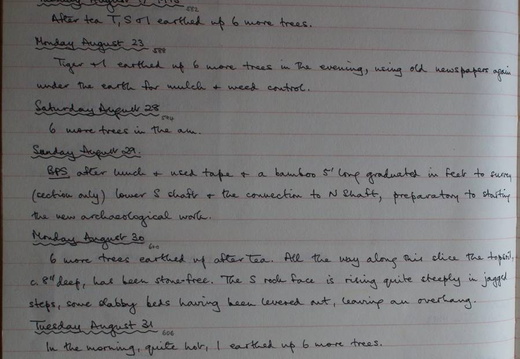 After tea T, S & I earthed up 6 more trees.
Monday August 23
Tiger & I earthed up 6 more trees in the evening, using old newspapers again
under the earth for mulch & weed control.
Saturday August 28
6 more trees in the am.
Sunday August 29.
BPS after lunch & used tape & a bamboo 5' long graduated in feet to survey
(section only) lower S shaft & the connection to N Shaft, preparatory to starting
the new archaeological work.
Monday August 30
6 more trees earthed up after tea. All the way along this slice the topsoil,
c. 8" deep, has been stonefree. The S rock face is rising quite steeply in jagged
steps, some slabby beds having been levered out, leaving an overhang.
Tuesday August 31
In the morning, quite hot, I earthed up 6 more trees.